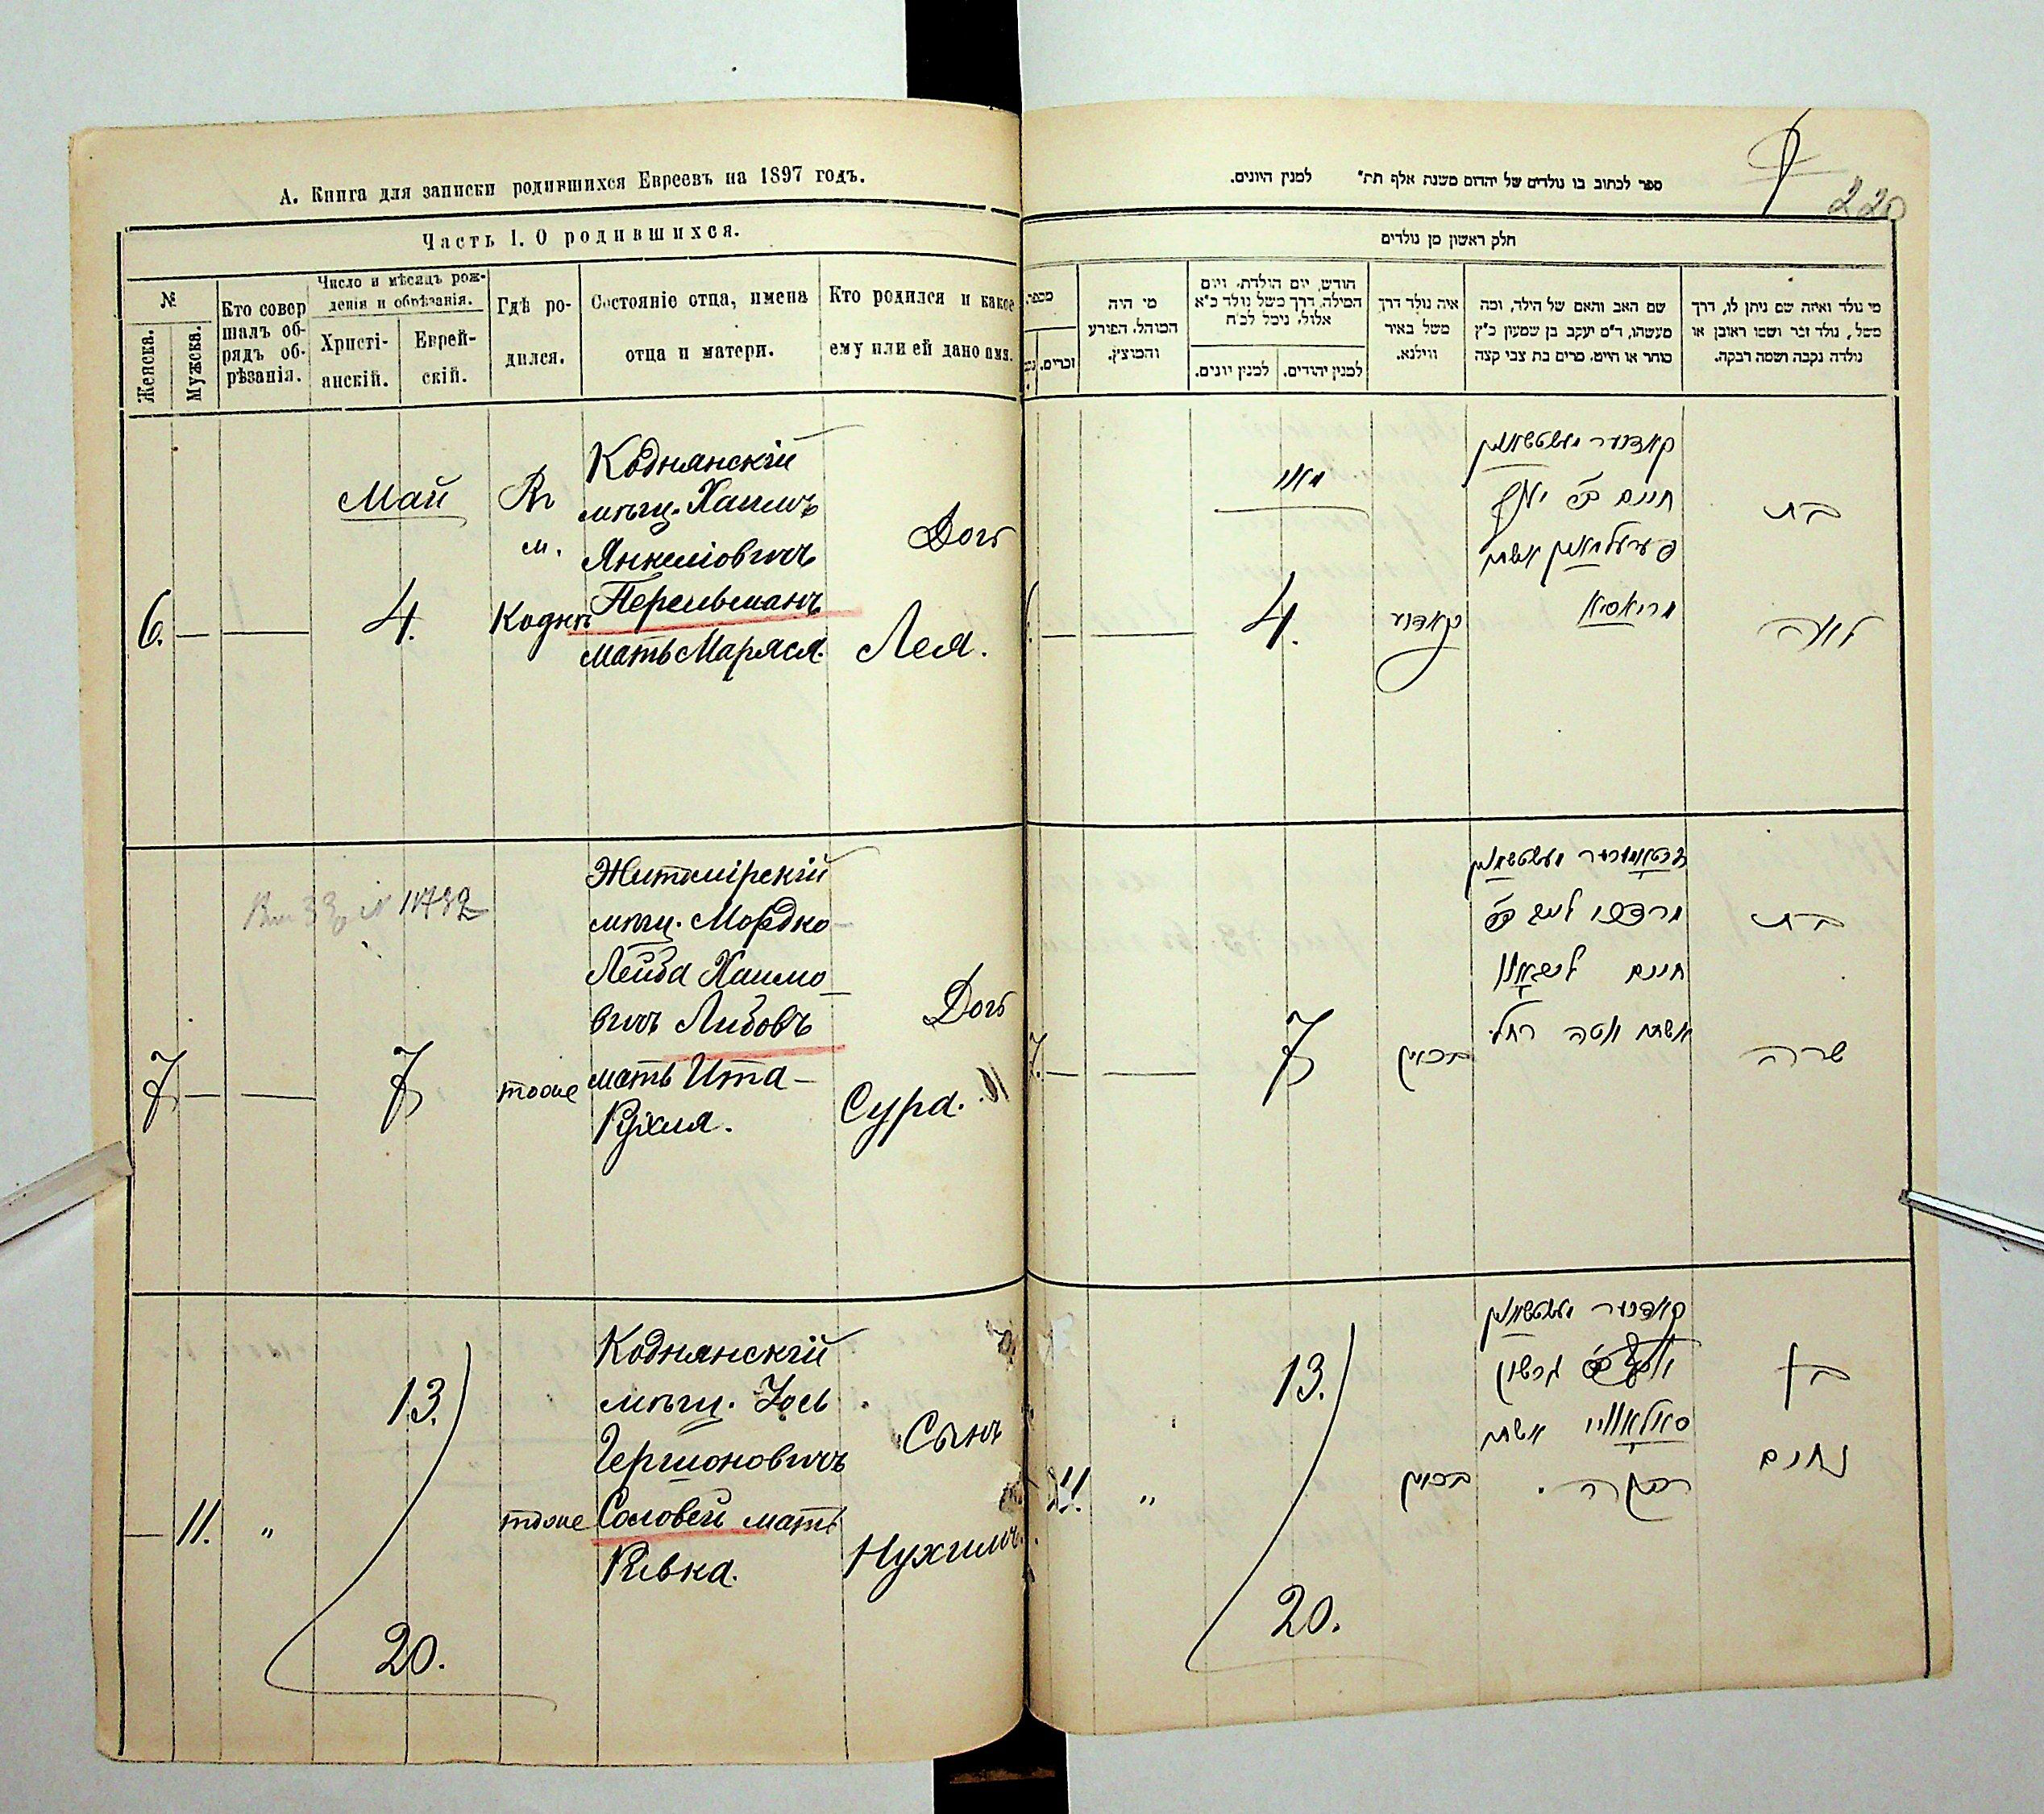 А. Книга для записки родившихся Евреевъ на 1897 годъ.
Часть I. О родившихся.
№
Женска.
Мужска.
Кто совер
шалъ об-
рядъ об-
рѣзанія.
Число и мѣсяцъ рож-
денія и обрѣзанія.
Христі-
анскій.
Еврей-
скій.
Гдѣ ро-
дился.
Состояніе отца, имена
отца и матери.
Кто родился и какое
ему или ей дано имя.
6.
—
—
Май
4.
Въ
м.
Кодню
Коднянскій
мѣщ. Хаимъ
Янкеліовичъ
Перельманъ
мать Маряся.
Дочь
Лея.
7
—
—
7
тоже
Житомірскій
мѣщ. Мордко
Лейба Хаимо
вичъ Либовъ
мать Ита-
Рухля.
Дочь
Сура.
—
11.
"
13.
20.
тоже
Коднянскій
мѣщ. Іось
Гершоновичъ
Соловей мать
Ривка.
Сынъ
Нухимъ.
220
ספר לכתוב בו נולדים של יהודים משנת אלף תת" למנין היונים.
חלק ראשון מן נולדים
מי נולד ואיזה שם ניתן לו, דרך
משל, נולד זכר ושמו ראובן או
נולדה נקבה ושמה רבקה.
שם האב והאם של הילד, ומה
מעשהו, ד"מ יעקב בן שמעון כ"ץ
סוחר או חייט. מרים בת צבי קצה
איה נולד דרך
משל באיר
ווילנא.
חודש, יום הולדת, ויום
המילה, דרך משל נולד כ"א
אלול, נימל לכ"ח
למנין יהודים.
למנין יונים.
מי היה
המוהל, הפורע
והמוצץ.
מספר
זכרים.
בת
לאה
קאדנער מעשטשאנין
חיים
פערעלמאן אשתו
מריאסיא
קאדניע
מאי
4.
—
—
בת
שרה
זיטאמירער מעשטשאנין
מרדכי ליב
חיים ליבאוו
אשתו איטה רחל
כנ"ל
7
—
—
7.
בן
נחום
קאדנער מעשטשאנין
גרשון
סאלאוויי אשתו
רבקה.
13.
20.
"
11.